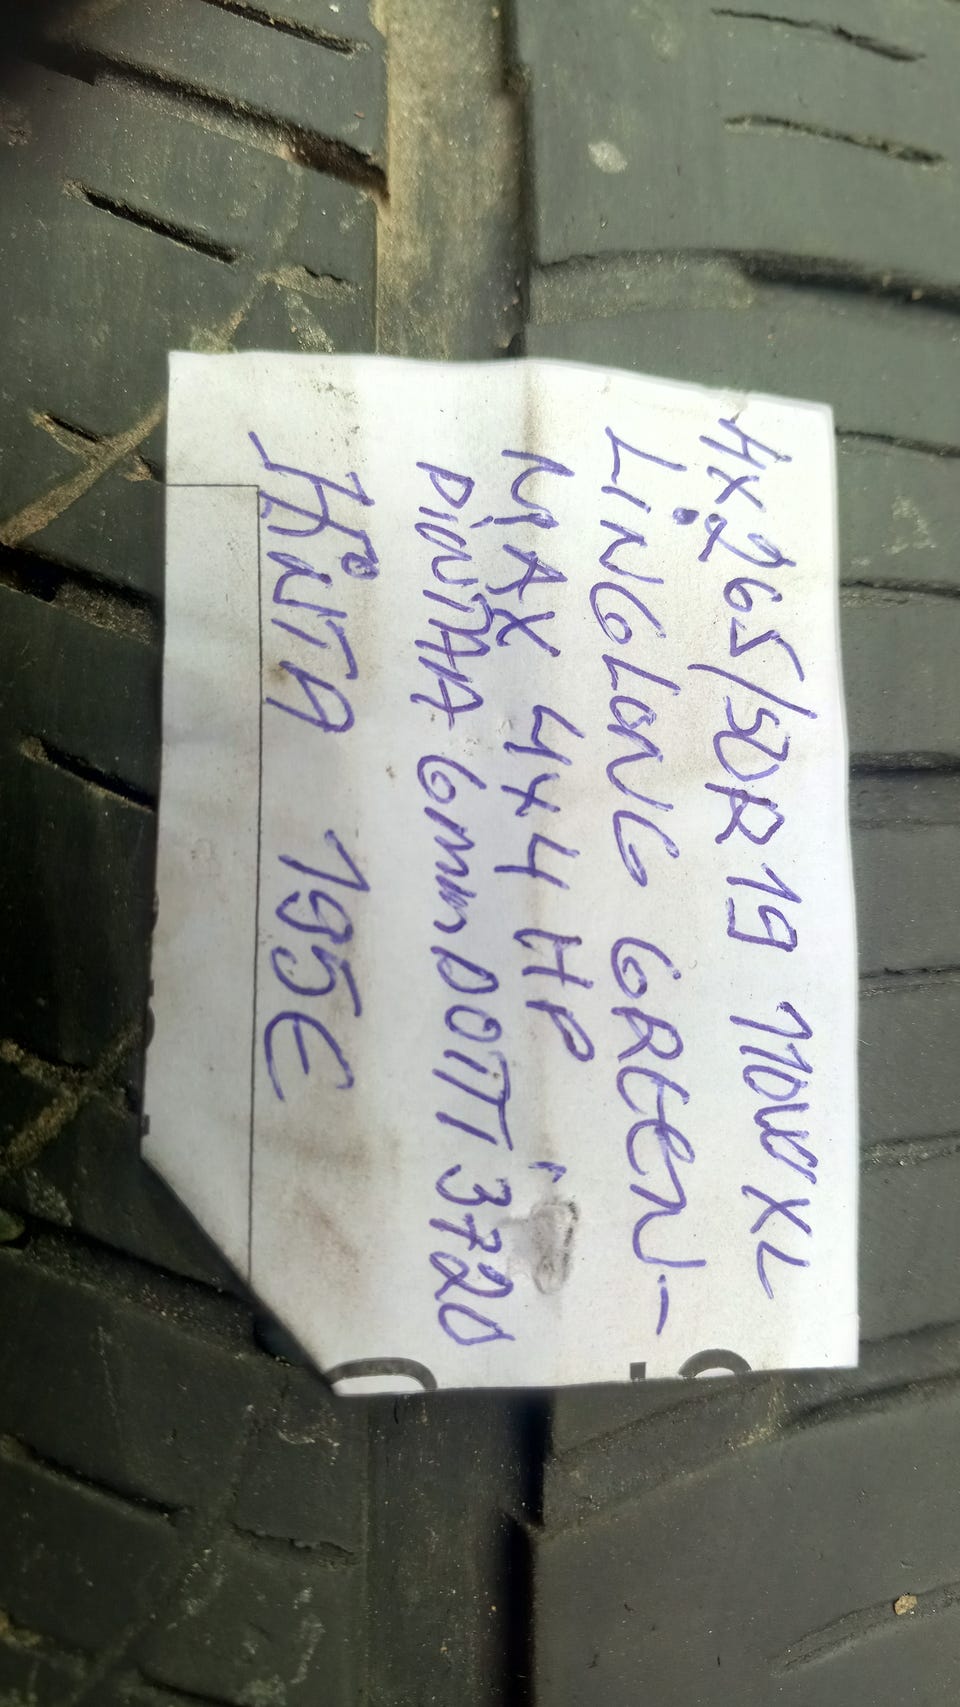 4x265/50R19 110W XL
LINGLONG GREEN-
MAX 4x4 HP
PINTAA 6mm DOTT 3720
HINTA 195€